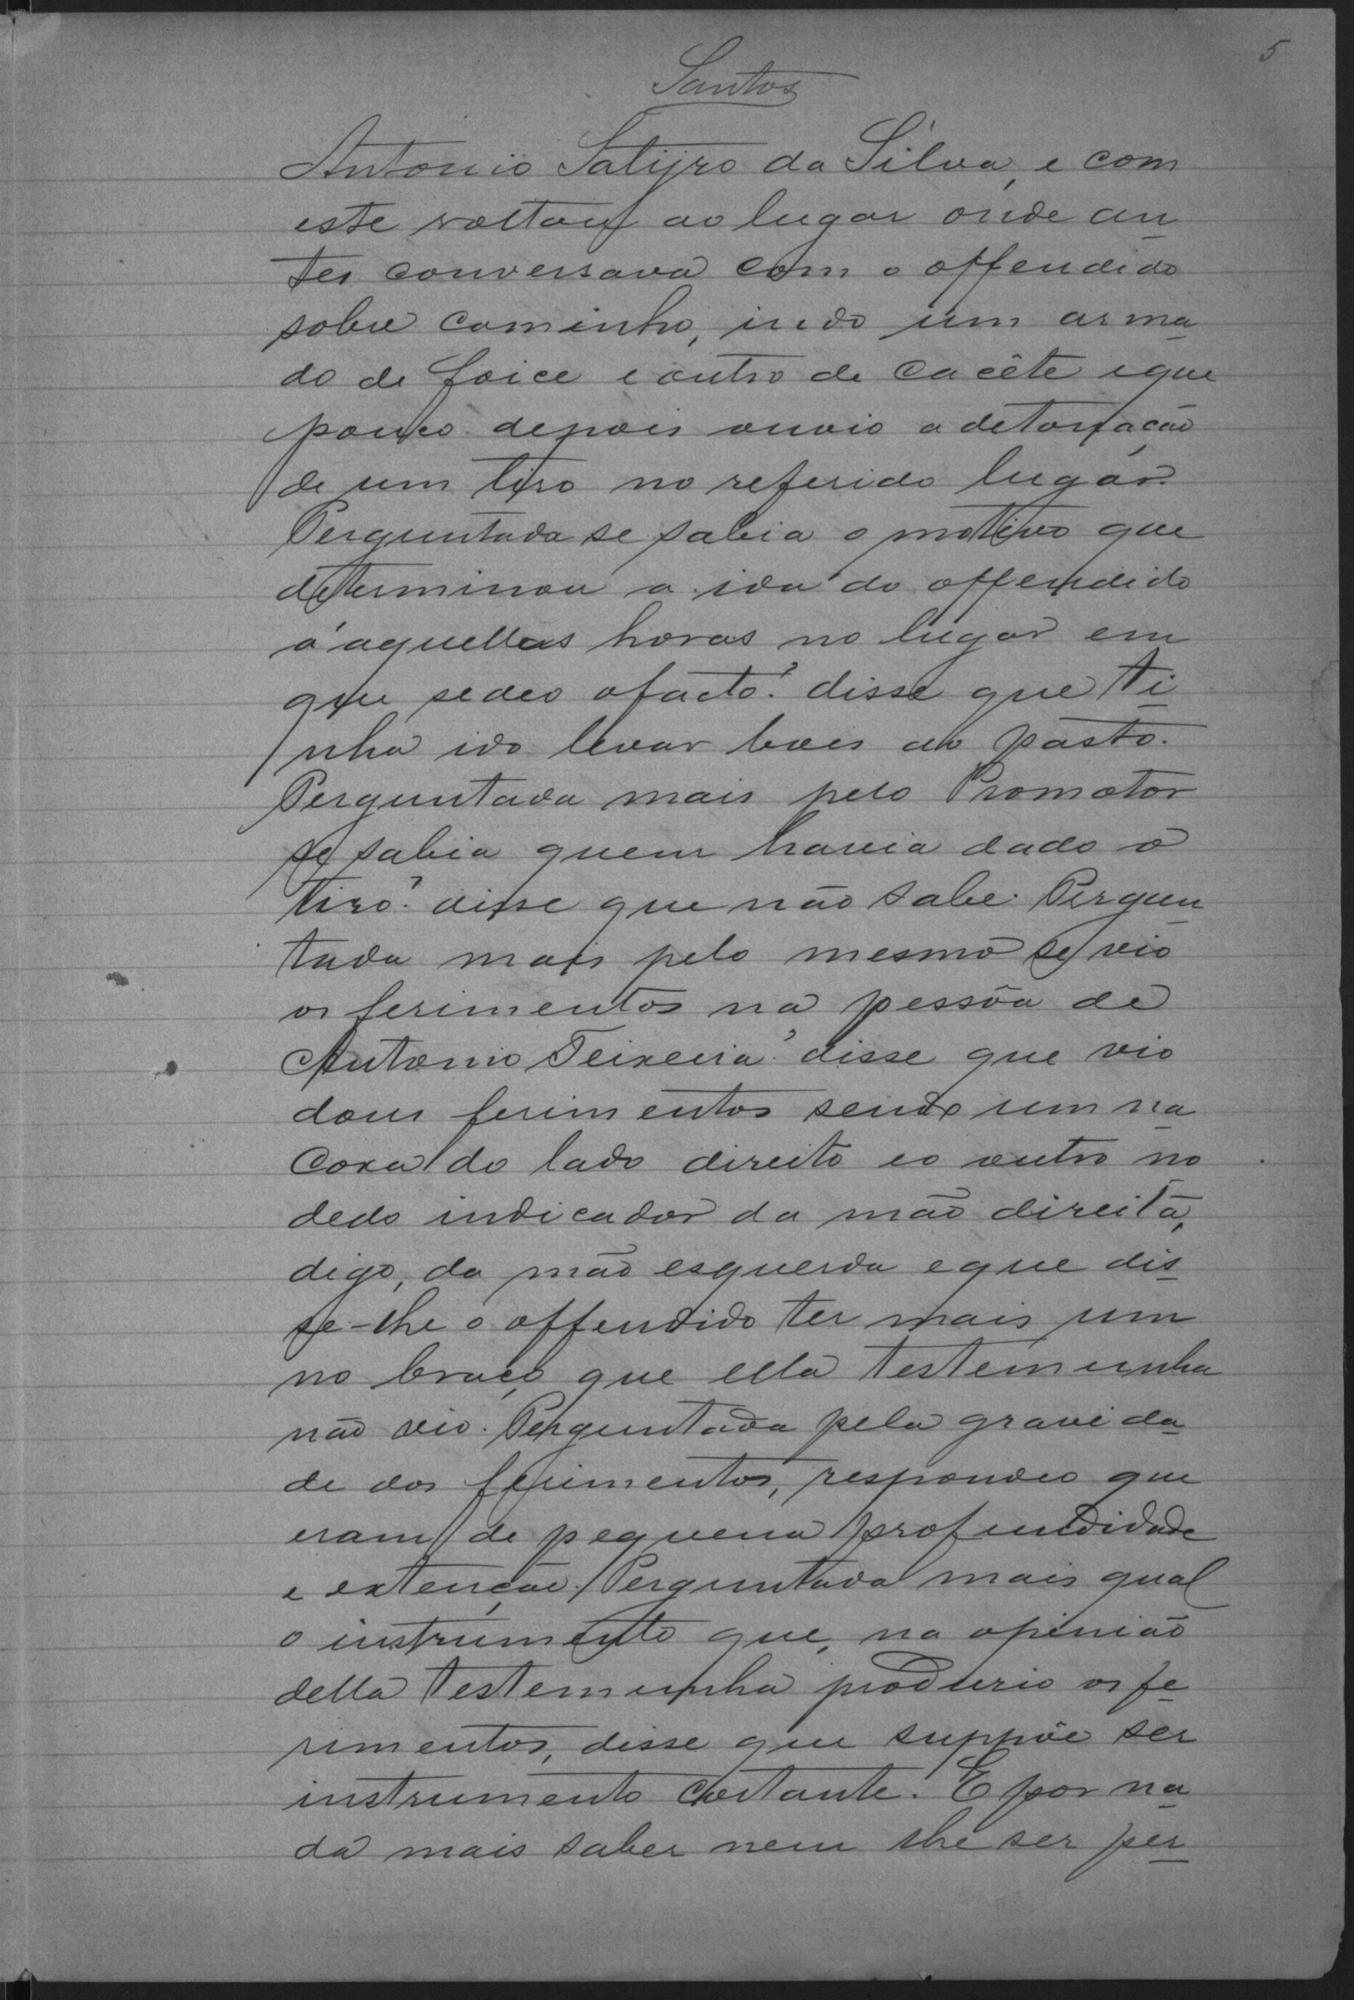 5
Santos
Antonio Satyro da Silva, e com
este voltou ao lugar onde an
tes conversava com o offendido
sobre caminho, indo um arma
do de foice e outro de cacête e que
pouco depois ouvio a detonação
de um tiro no referido lugar.
Perguntada se sabia o motivo que
determinou a ida do offendido
á aquellas horas no lugar em
que se deo o facto? disse que ti
nha ido levar bois ao pasto.
Perguntada mais pelo Promotor
se sabia quem havia dado o
tiro? disse que não sabe. Pergun
tada mais pelo mesmo se vio
os ferimentos na pessôa de
Antonio Teixeira? disse que vio
dous ferimentos sendo um na
coxa do lado direito e o outro no
dedo indicador da mão direita,
digo, da mão esquerda e que dis
se-lhe o offendido ter mais um
no braço que ella testemunha
não vio. Perguntada pela gravida
de dos ferimentos, respondeo que
eram de pequena profundidade
e extenção. Perguntada mais qual
o instrumento que, na opinião
della testemunha produzio os fe
rimentos, disse que suppõe ser
instrumento cortante. E por na
da mais saber nem lhe ser per